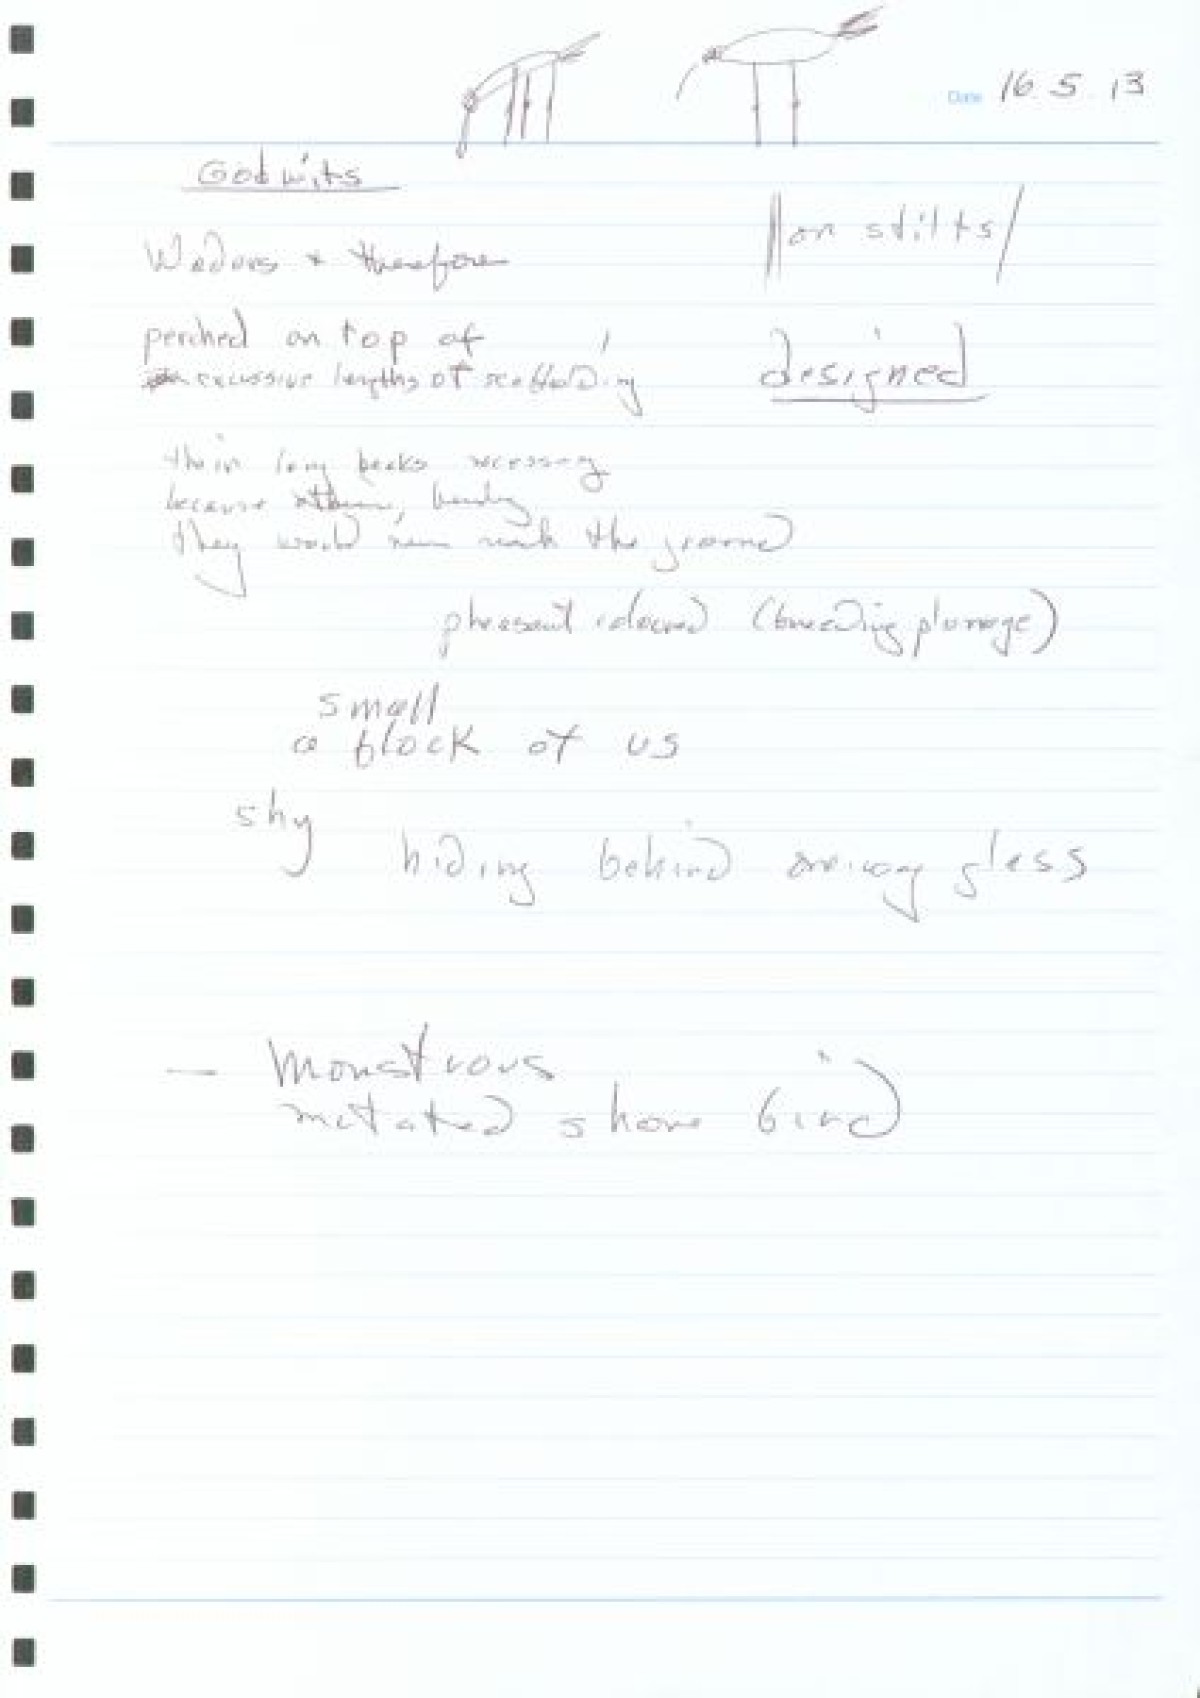 Date 16.5.13
Godwits
||on stilts/
Waders + therefore
perched on top of
excessive lengths of scaffolding
designed
their long beaks necessary
because
they would never reach the ground
pheasant coloured (breeding plumage)
small
a flock of us
shy
hiding behind oneway glass
— Monstrous
mutated shore bird